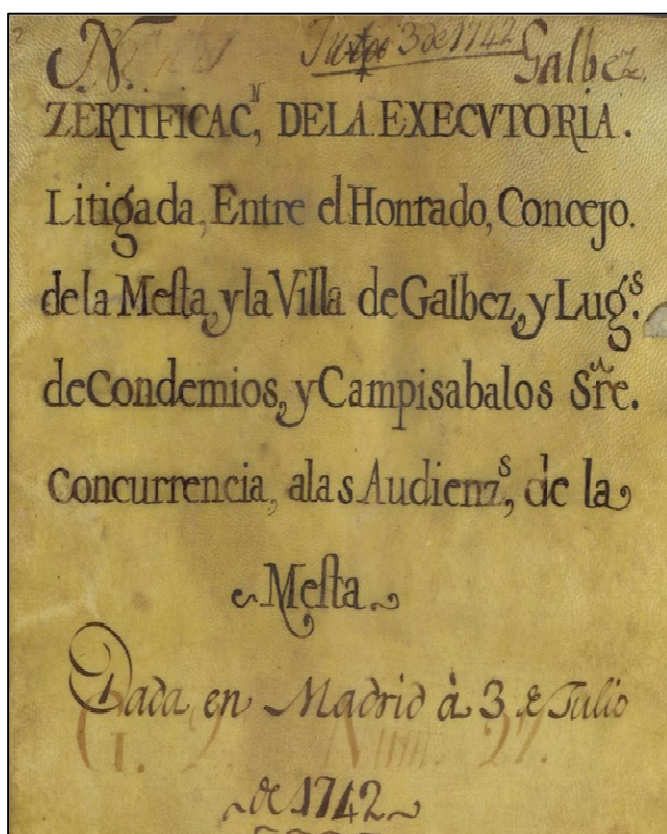 N. Julio 3 de 1742 Galbez
ZERTIFICAC,N DELA EXECVTORIA.
Litigada, Entre el Honrado, Concejo.
de la Mesta, y la Villa de Galbez, y Lug.s
de Condemios, y Campisabalos Sre.
Concurrencia, alas Audienz,s de la
Mesta
Dada en Madrid à 3 de Julio
G. 2. Num. 27.
de 1742